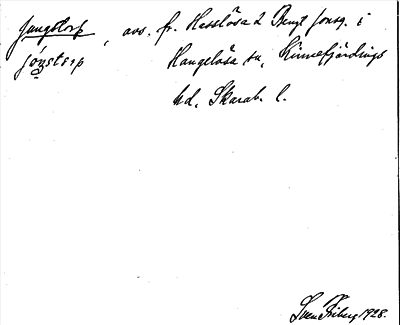 Jungstorp, avs. fr. Hesslösa 2 Bengt Jonsg. i
jóŋstɛrp Hangelösa sn, Kinnefjärdings
hd, Skarab. l.
Sven Friberg 1928.